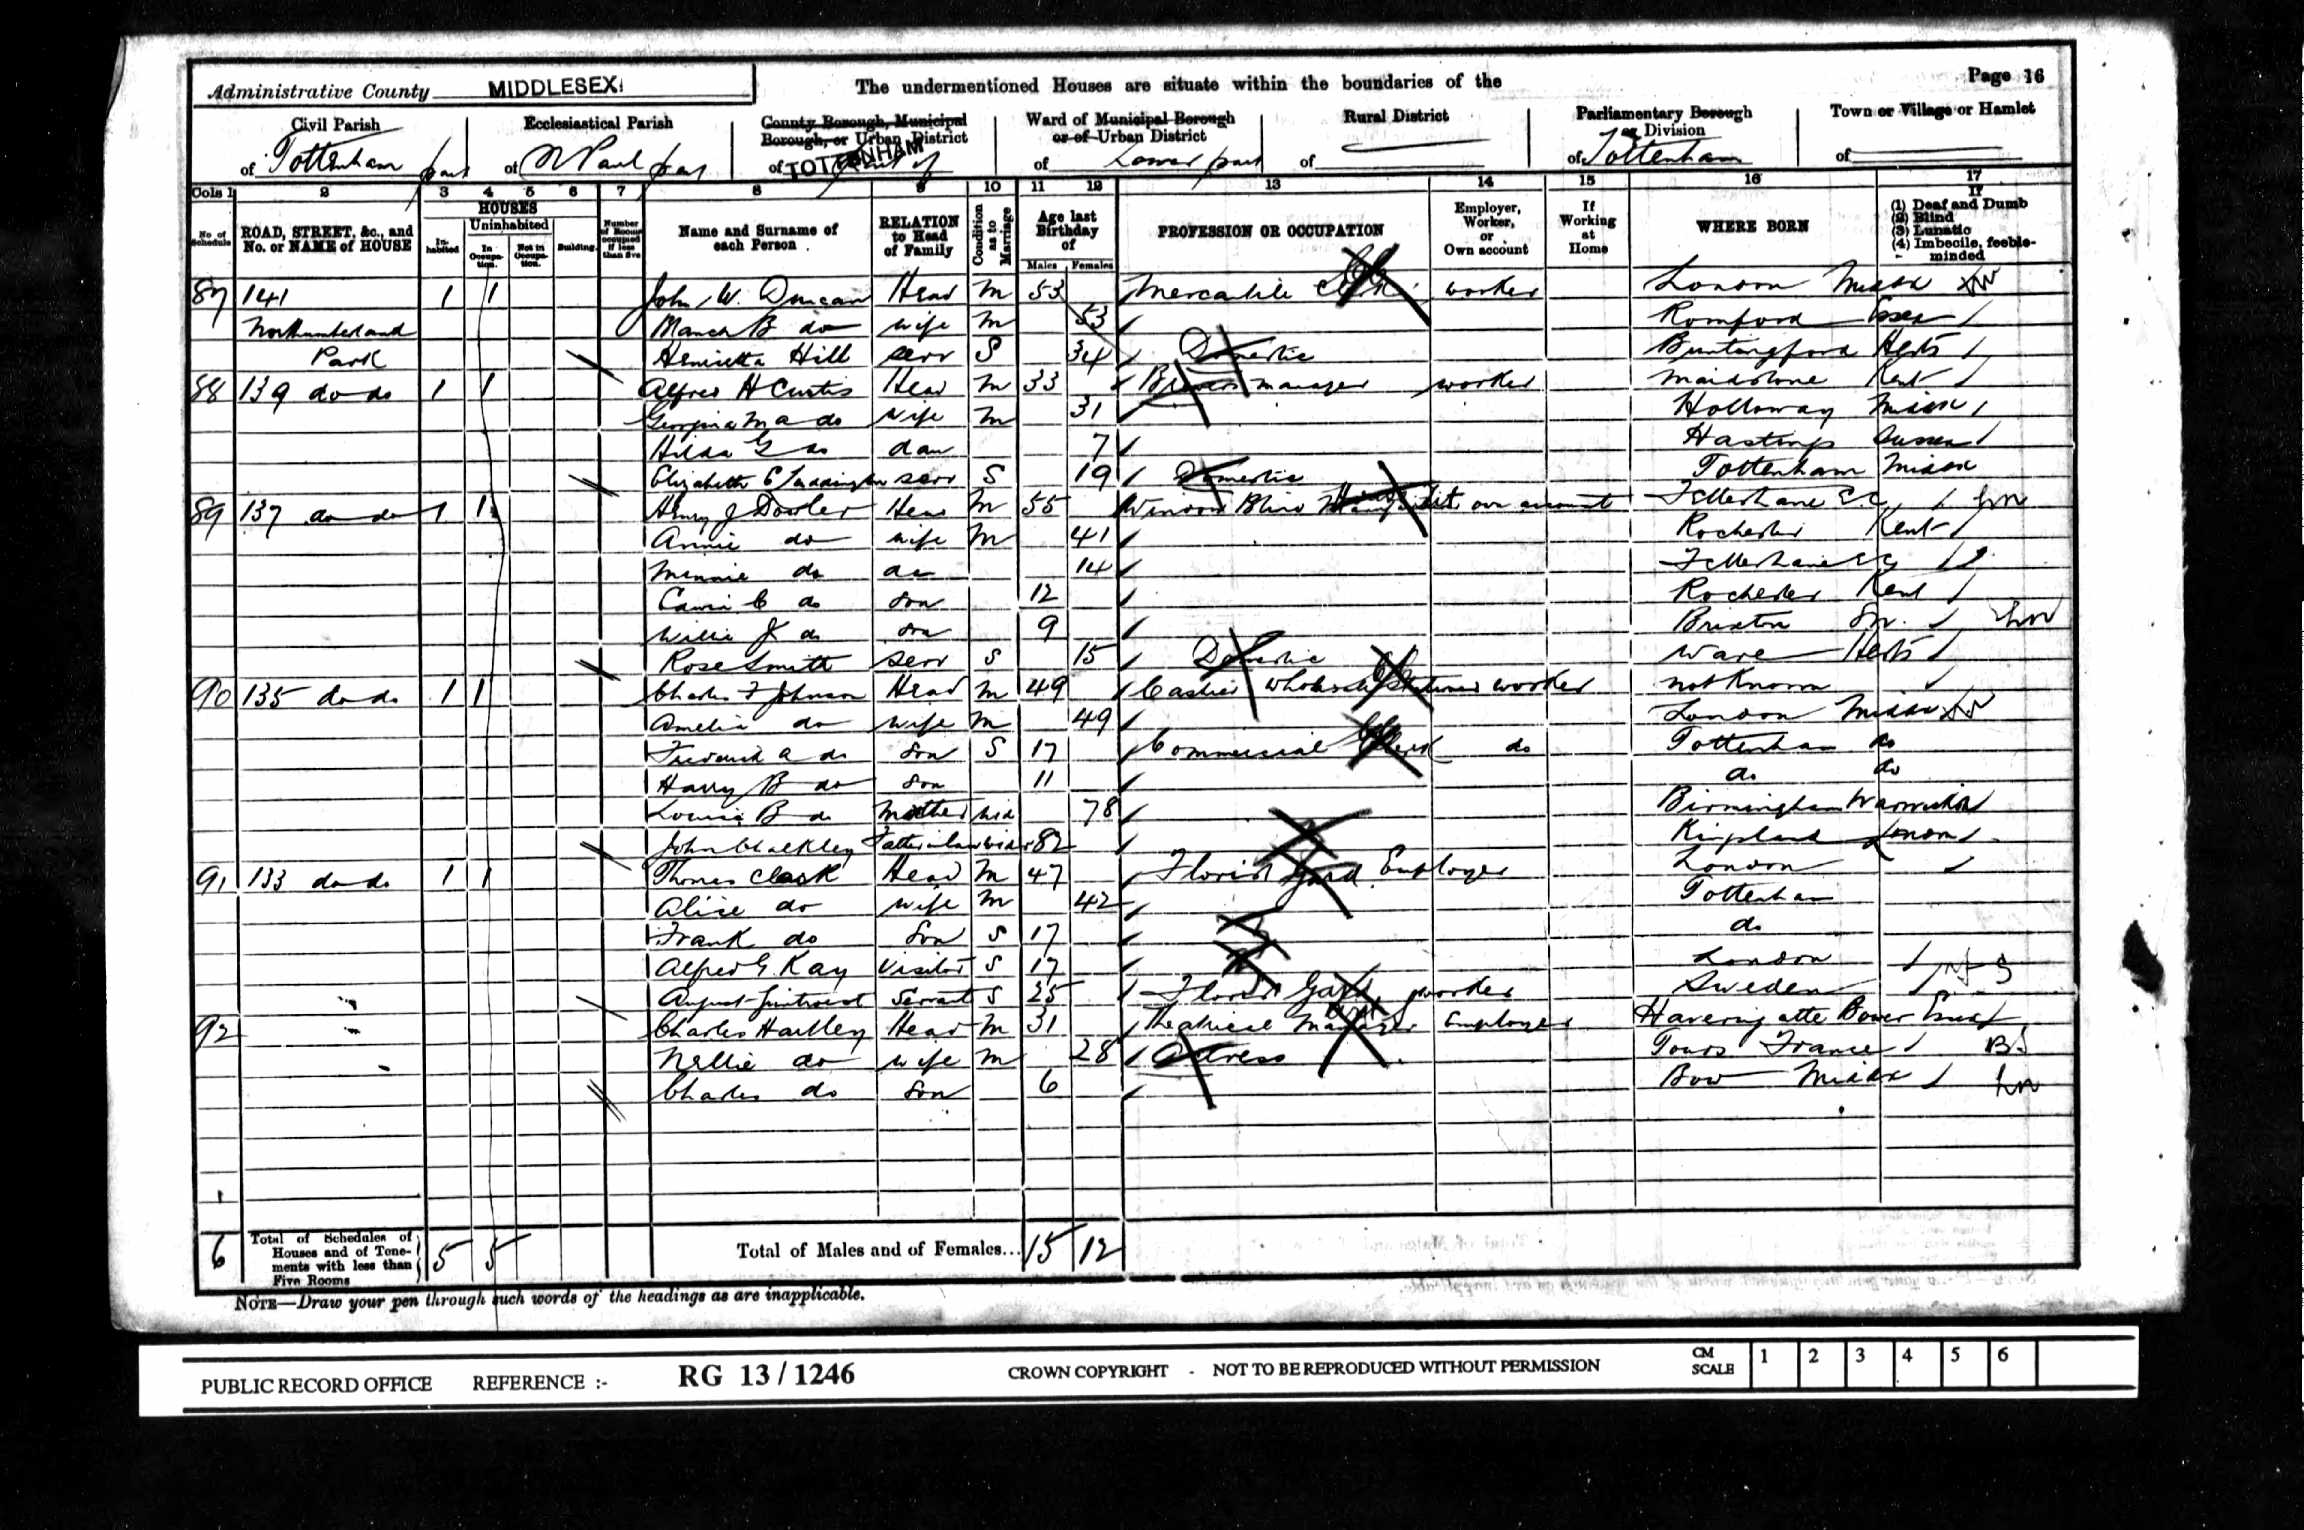 Page 16
Administrative County MIDDLESEX
The undermentioned Houses are situate within the boundaries of the
Civil Parish
of Tottenham part
Ecclesiastical Parish
of St Paul part
County Borough, Municipal Borough, or Urban District
of TOTTENHAM part of
Ward of Municipal Borough or of Urban District
of Lower part
Rural District
of
Parliamentary Borough or Division
of Tottenham
Town or Village or Hamlet
of
Cols 1 2 3 4 5 6 7 8 9 10 11 12 13 14 15 16 17
No. of Schedule
ROAD, STREET, &c., and No. or NAME of HOUSE
HOUSES
Inhabited
Uninhabited
In Occupation.
Not in Occupation.
Building.
Number of Rooms occupied if less than five
Name and Surname of each Person
RELATION to Head of Family
Condition as to Marriage
Age last Birthday of
Males Females
PROFESSION OR OCCUPATION
Employer, Worker, or Own account
If Working at Home
WHERE BORN
If
(1) Deaf and Dumb
(2) Blind
(3) Lunatic
(4) Imbecile, feeble-minded
87 141 1 1 John W. Duncan Head M 53 Mercantile Clerk worker London Middx
Northumberland B do wife M 53 Romford Essex
Park Henrietta Hill serv S 34 Domestic Buntingford Herts
88 139 do do 1 1 Alfred H Curtis Head M 33 manager worker Maidstone Kent
Georgina M A do wife M 31 Holloway Middx
Hilda G do dau 7 Hastings Sussex
Elizabeth E serv S 19 Domestic Tottenham Middx
89 137 do do 1 1 Henry J Dowler Head M 55 Window Blind own account Fetter Lane E.C.
Annie do wife M 41 Rochester Kent
Minnie do da 14 Fetter Lane EC
Edwin C do son 12 Rochester Kent
Willie J do son 9 Brixton
Rose Smith serv S 15 Domestic Ware Herts
90 135 do do 1 1 Charles F Johnson Head M 49 Cashier Wholesale Stationers worker not Known
Amelia do wife M 49 London Middx
Frederick A do Son S 17 Commercial Clerk do Tottenham do
Harry B do Son 11 do do
Louisa B do Mother Wid 78 Birmingham Warwick
John Father in law 82 Kingsland London
91 133 do do 1 1 Thomas Clark Head M 47 Florist Employer London
Alice do wife M 42 Tottenham
Frank do Son S 17 do
Alfred G. Kay Visitor S 17 London
August Servant S 25 Florist worker Sweden
92 Charles Hartley Head M 31 Theatrical Manager Employer Havering atte Bower Essex
Nellie do wife M 28 Actress Tours France
Charles do Son 6 Bow Middx
6 Total of Schedules of Houses and of Tenements with less than Five Rooms 5 5 Total of Males and of Females... 15 12
NOTE—Draw your pen through such words of the headings as are inapplicable.
PUBLIC RECORD OFFICE REFERENCE :- RG 13 / 1246 CROWN COPYRIGHT - NOT TO BE REPRODUCED WITHOUT PERMISSION CM SCALE 1 2 3 4 5 6